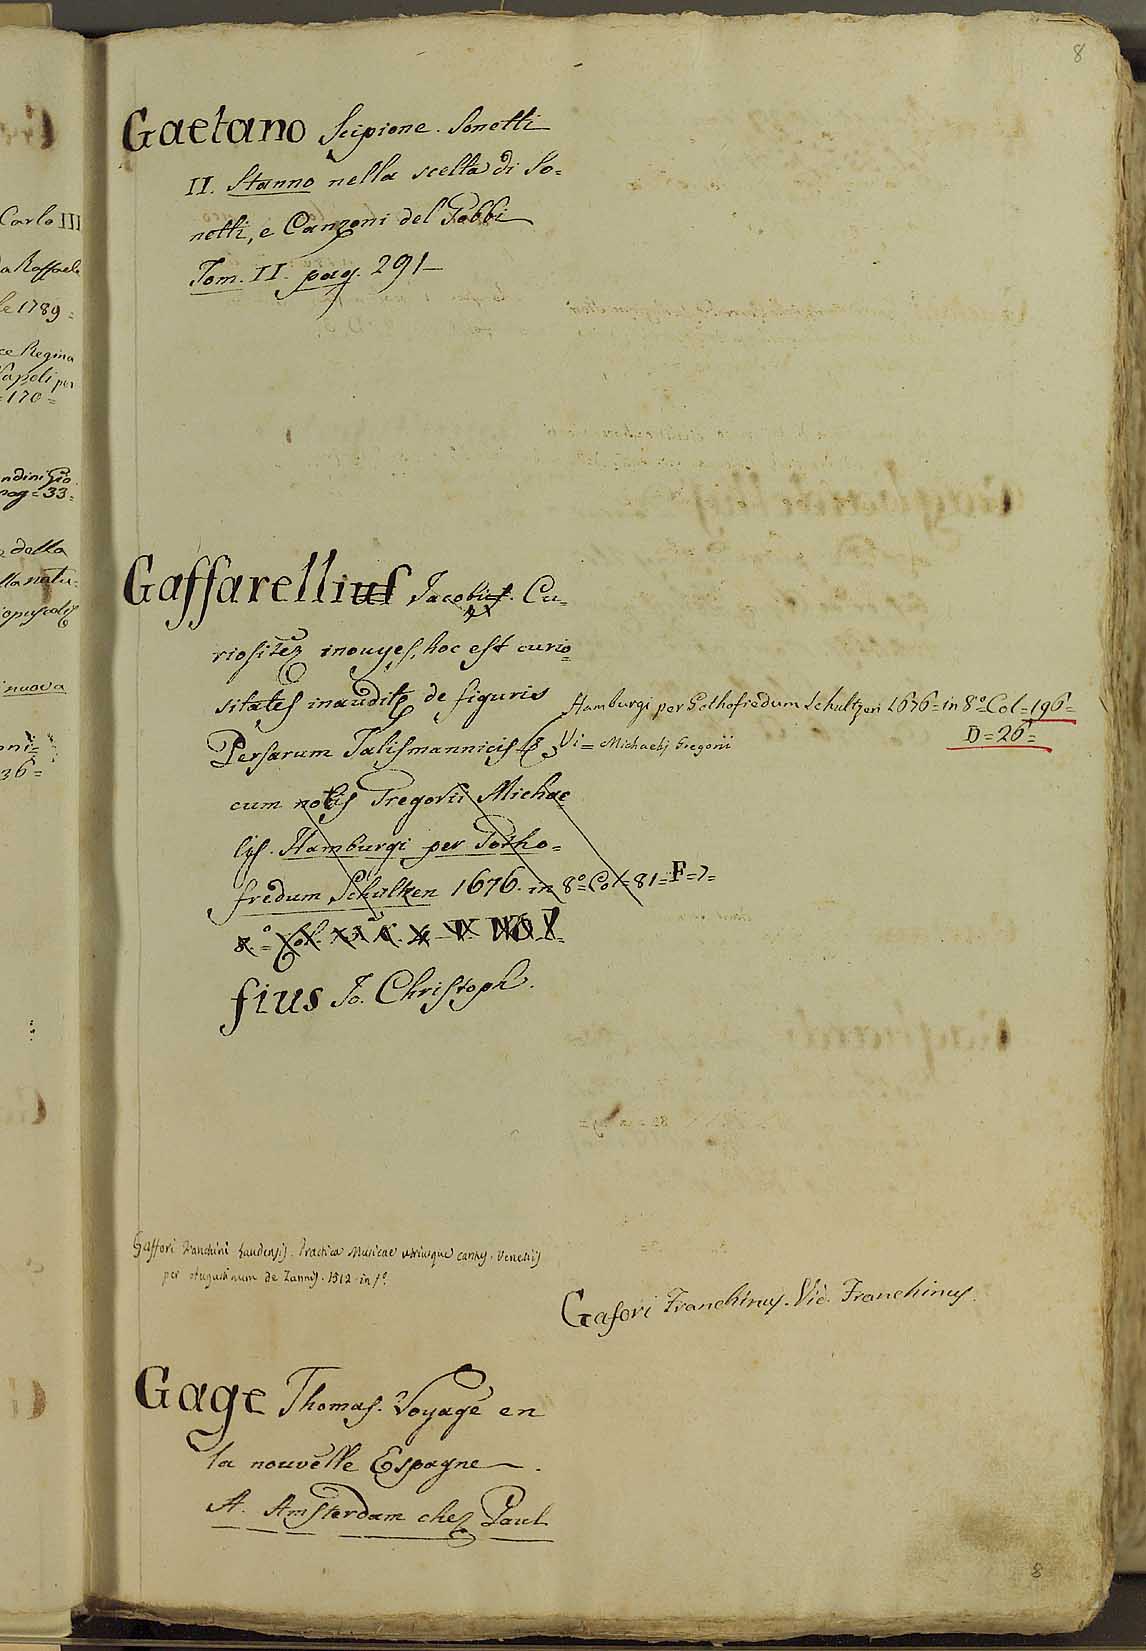 8
Gaetano Scipione. Sonetti
II. Stanno nella scelta di So=
netti, e Canzoni del Gobbi
Tom. II. pag. 291
Gaffarellius Jacobus. Cu=
riositez inouyes, hoc est curio=
sitates inauditę de figuris
Persarum Talismannicis
Hamburgi per Gothofredum Schultzen 1676= in 8.º Col=196=
D=26=
Vi= Michaelis Gregorii
cum notis Gregorii Michae
lis. Hamburgi per Gotho=
fredum Schulzen 1676. in 8º= Col=81=F=7=
8.º= Col.
fius Jo. Christoph.
Gaffori Franchini Laudensis. Practica Musicae utriusque cantus. Venetiis
per Augustinum de Zannis. 1512. in fº.
Gafori Franchinus. Vid. Franchinus.
Gage Thomas. Voyage en
la nouvelle Espagne
A. Amsterdam chez Paul
8
Carlo III
a Raffaele
le 1789=
ce Regina
Napoli per
=170=
ndini Gio.
pag=33=
della
lla natu=
opuscoli
nuova
oni=
36=